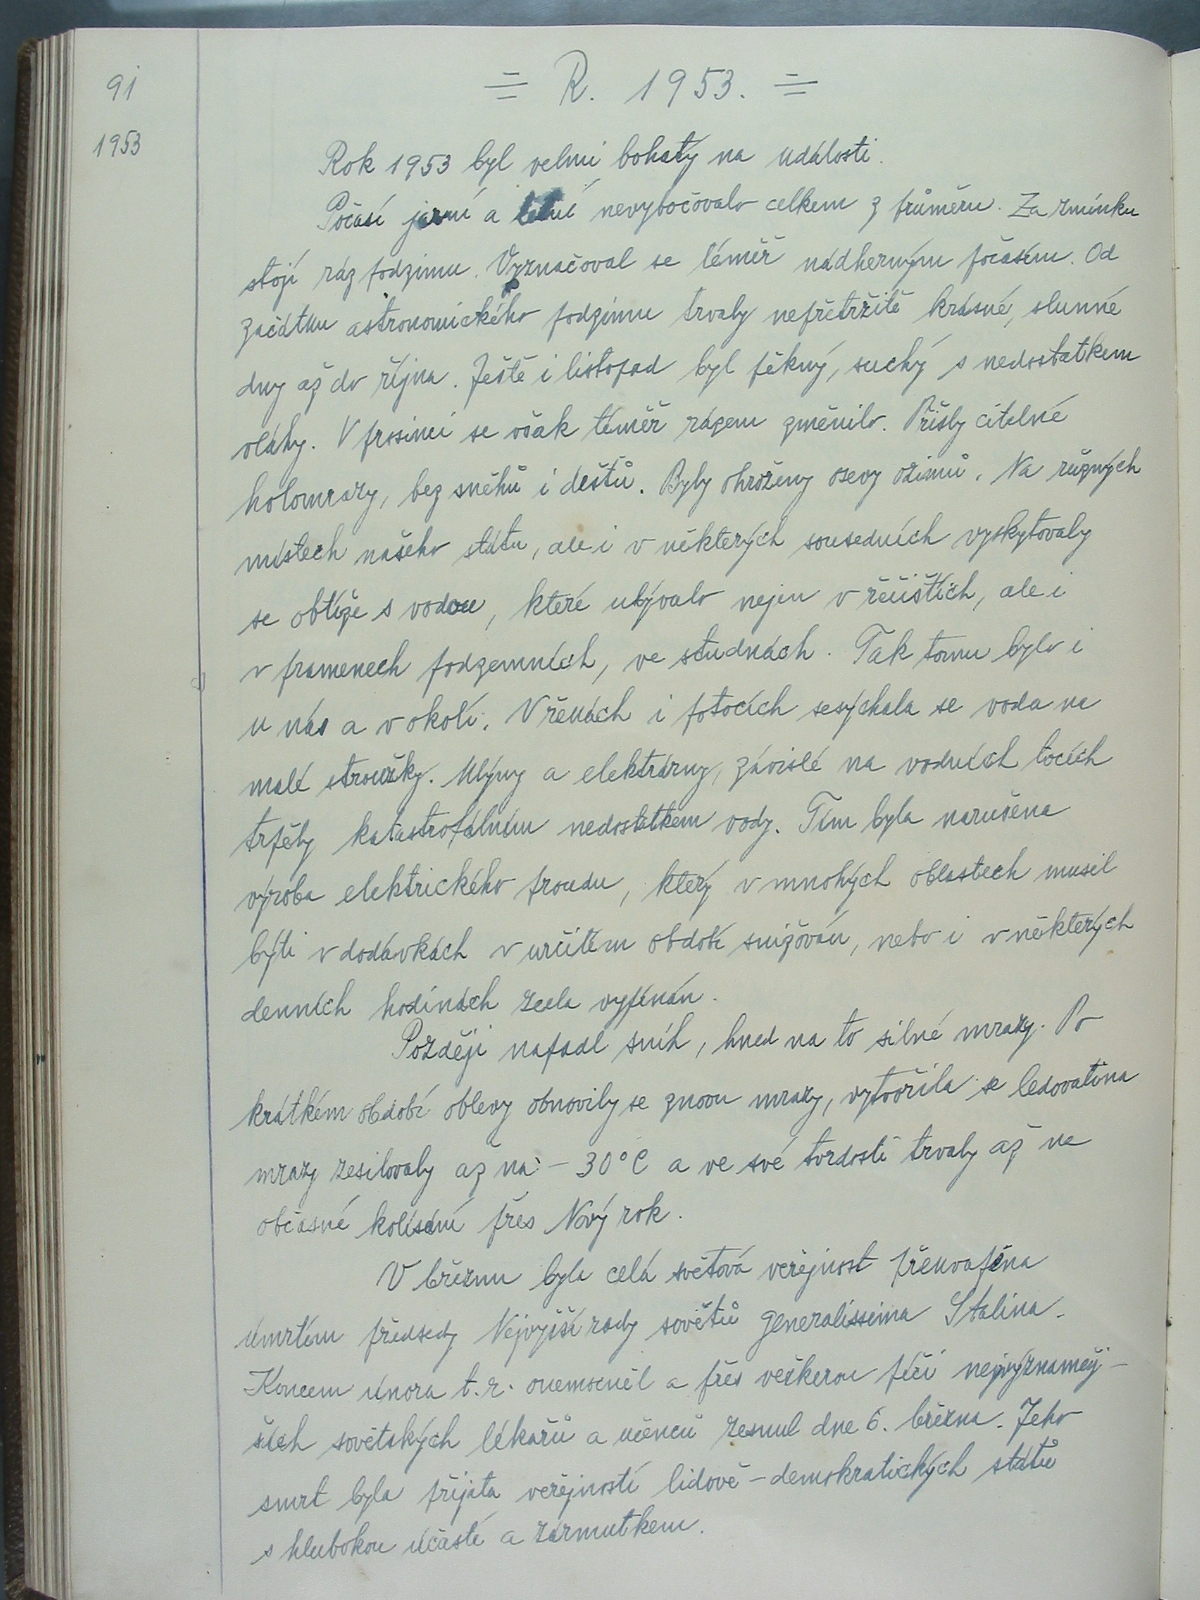 91
= R. 1953. =
1953
Rok 1953 byl velmi bohatý na události.
Počasí jarní a letní nevybočovalo celkem z průměru. Za zmínku
stojí ráz podzimu. Vyznačoval se téměř nádherným počasím. Od
začátku astronomického podzimu trvaly nepřetržitě krásné, slunné
dny až do října. Ještě i listopad byl pěkný, suchý s nedostatkem
vláhy. V prosinci se však téměř rázem změnilo. Přišly citelné
holomrazy, bez sněhů i dešťů. Byly ohroženy osevy ozimů. Na různých
místech našeho státu, ale i v některých sousedních vyskytovaly
se obtíže s vodou, které ubývalo nejen v řečištích, ale i
v pramenech podzemních, ve studnách. Tak tomu bylo i
u nás a v okolí. V řekách i potocích sesýchala se voda na
malé stroužky. Mlýny a elektrárny, závislé na vodních tocích
trpěly katastrofálním nedostatkem vody. Tím byla narušena
výroba elektrického proudu, který v mnohých oblastech musil
býti v dodávkách v určitém obdobi snižován, nebo i v některých
denních hodinách zcela vypínán.
Později napadl sníh, hned na to silné mrazy. Po
krátkém období oblevy obnovily se znovu mrazy, vytvořila se ledovatina
mrazy zesilovaly až na - 30°C a ve své tvrdosti trvaly až na
občasné kolísání přes Nový rok.
V březnu byla celá světová veřejnost překvapena
úmrtím předsedy Nejvyšší rady sovětů generalissima Stalina.
Koncem února t.r. onemocněl a přes veškerou péči nejvýznamněj-
ších sovětských lékařů a učenců zesnul dne 6. března. Jeho
smrt byla přijata veřejností lidově-demokratických států
s hlubokou účastí a zármutkem.